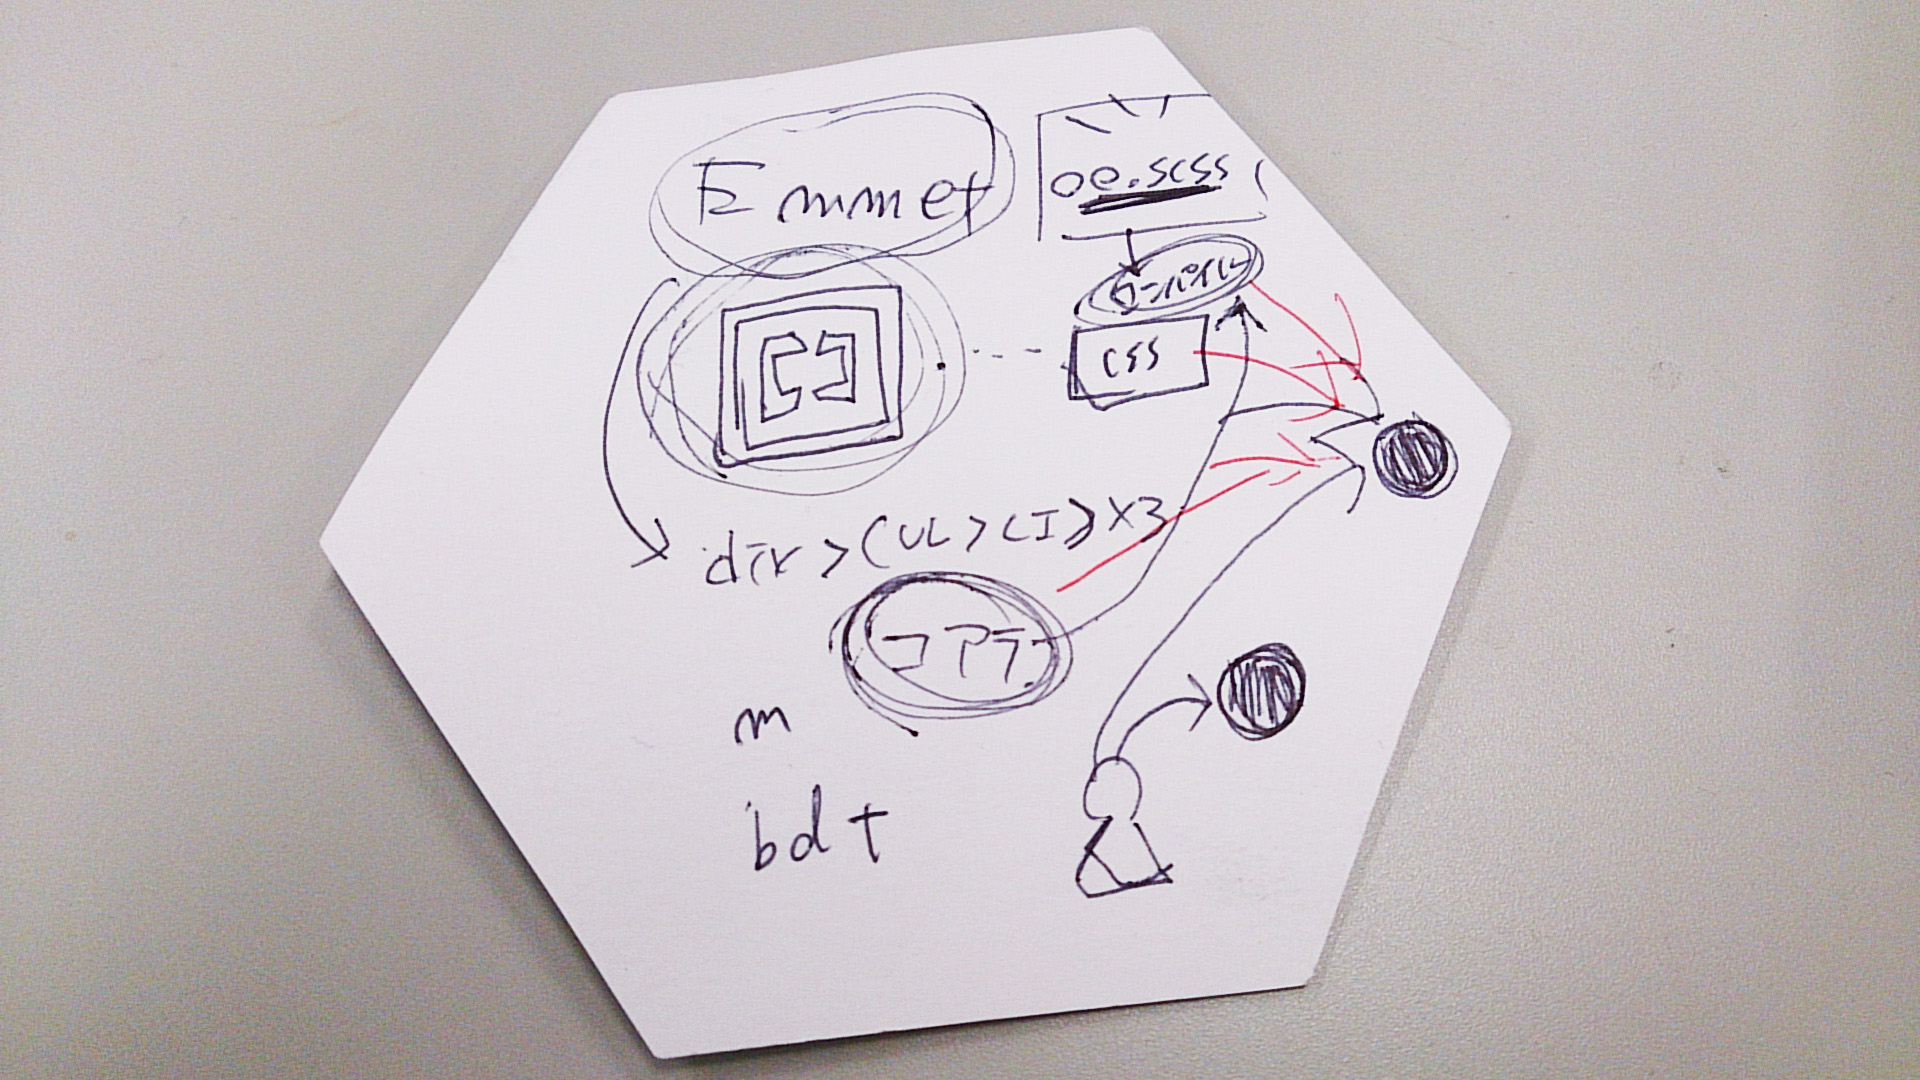 Emmet
oe.scss
コンパイル
css
div>(UL>LI)×3
コアラ
m
bdt